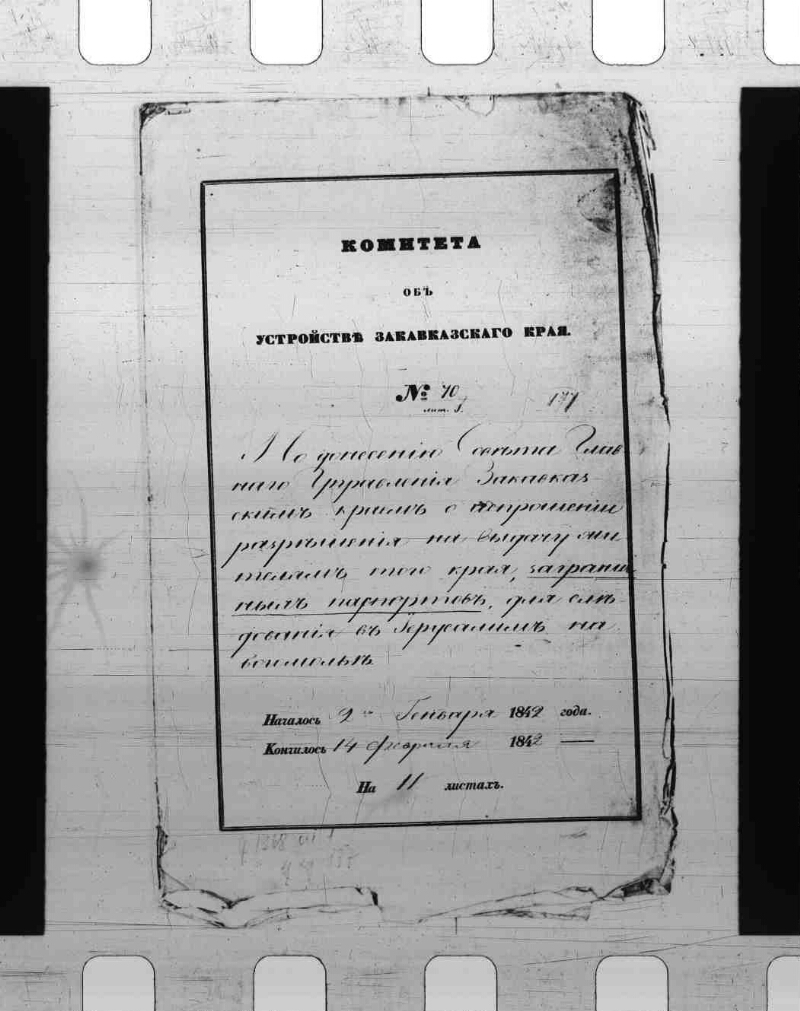 КОМИТЕТА
ОБЪ
УСТРОЙСТВѢ ЗАКАВКАЗСКАГО КРАЯ.
№ 70
лит. З.
177
По донесенію Совѣта Глав
наго Управленія Закавказ
скимъ краемъ о испрошеніи
разрѣшенія на выдачу жи
телямъ того края, заграни
ныхъ паспортовъ, для слѣ
дованія въ Іерусалимъ на
богомолье
Началось 2 Генваря 1842 года.
Кончилось 14 февраля 1842 —
На 11 листахъ.